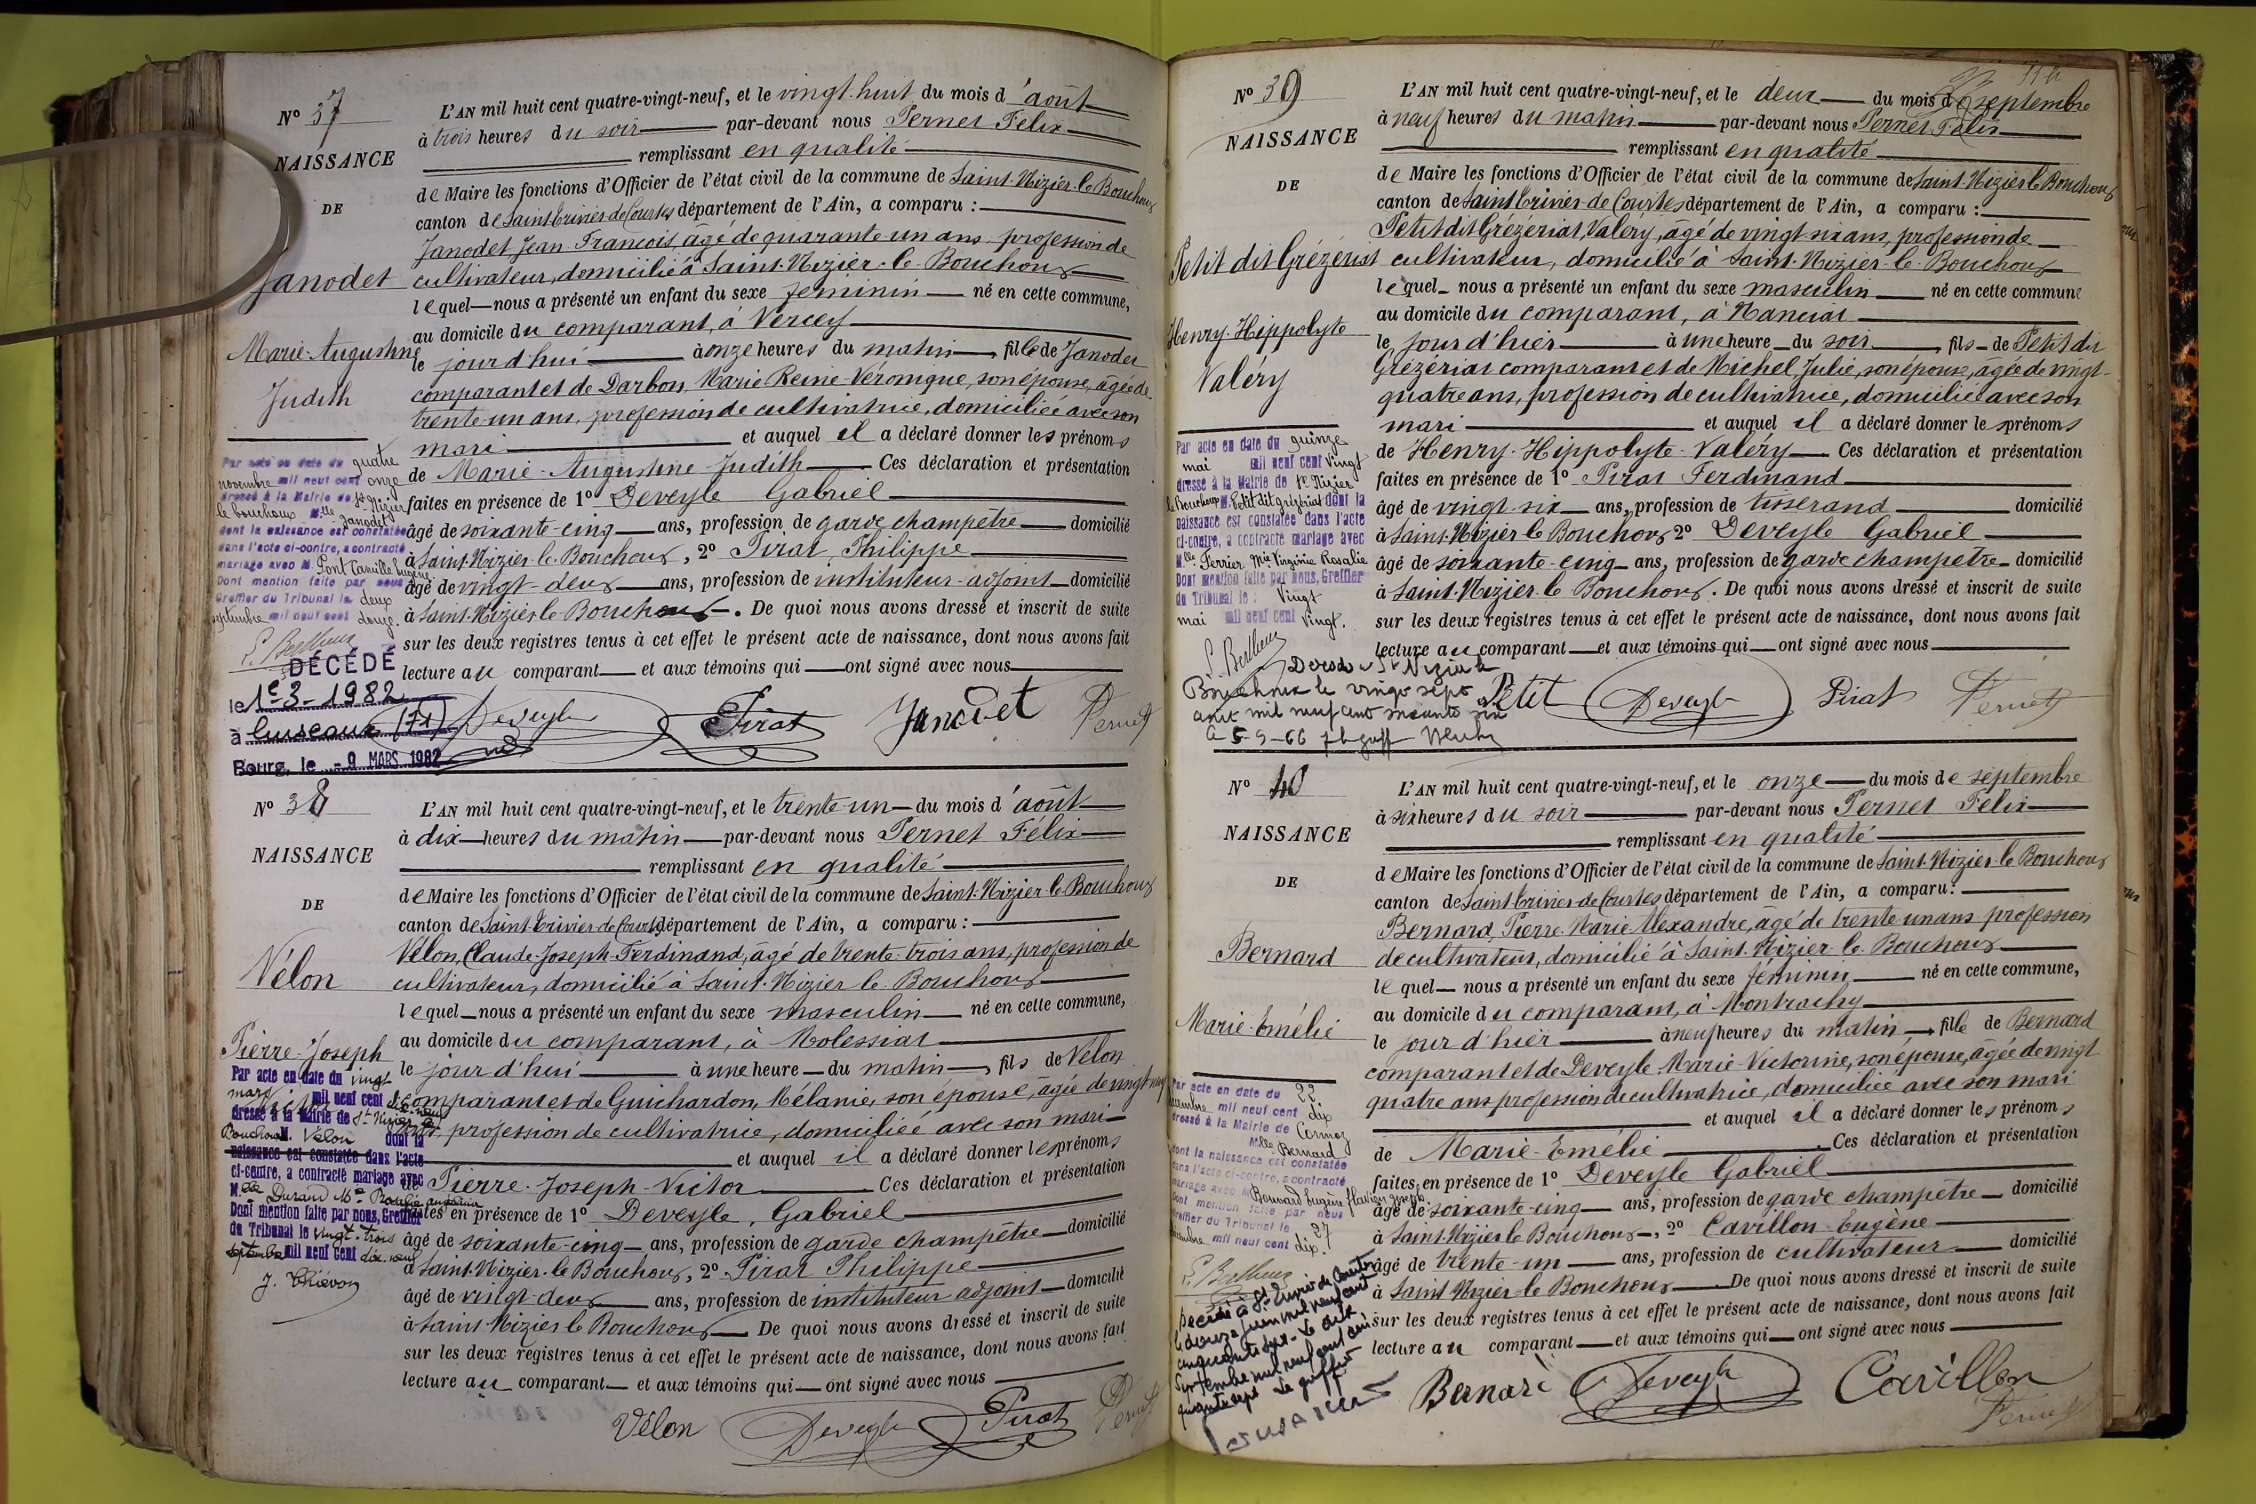 N° 37
NAISSANCE
DE
Janodet
Marie-Augustine
Judith
Par acte en date du quatre
novembre mil neuf cent onze
dressé à la Mairie de St Nizier
le bouchoux Mlle Janodet
dont la naissance est constatée
dans l'acte ci-contre, a contracté
mariage avec M. Pont Camille Eugène
Dont mention faite par nous
Greffier du Tribunal le deux
septembre mil neuf cent douze.
DÉCÉDÉ
le 1er-3-1982
à Cuiseaux (71)
Bourg, le - 9 MARS 1982
L'AN mil huit cent quatre-vingt-neuf, et le vingt-huit du mois d'août
à trois heures du soir par-devant nous Pernet Félix
remplissant en qualité
de Maire les fonctions d'Officier de l'état civil de la commune de Saint-Nizier-le-Bouchoux
canton de Saint Trivier de Courtes département de l'Ain, a comparu :
Janodet Jean-François, âgé de quarante-un ans, profession de
cultivateur, domicilié à Saint-Nizier-le-Bouchoux
lequel nous a présenté un enfant du sexe féminin né en cette commune,
au domicile du comparant, à Vercey
le jourd'hui à onze heures du matin, fille de Janodet
comparant et de Darbon, Marie Reine Véronique, son épouse, âgée de
trente-un ans, profession de cultivatrice, domiciliée avec son
mari et auquel il a déclaré donner les prénoms
de Marie-Augustine-Judith Ces déclaration et présentation
faites en présence de 1° Deveyle Gabriel
âgé de soixante-cinq ans, profession de garde champêtre domicilié
à Saint-Nizier-le-Bouchoux, 2° Pirat, Philippe
âgé de vingt-deux ans, profession de instituteur-adjoint domicilié
à Saint-Nizier le Bouchoux. De quoi nous avons dressé et inscrit de suite
sur les deux registres tenus à cet effet le présent acte de naissance, dont nous avons fait
lecture au comparant et aux témoins qui ont signé avec nous
Deveyle Pirat Janodet Pernet
N° 38
NAISSANCE
DE
Vélon
Pierre-Joseph
Par acte en date du vingt
mars mil neuf cent dix-neuf
dressé à la Mairie de St Nizier le
Bouchoux M. Vélon dont la
naissance est constatée dans l'acte
ci-contre, a contracté mariage avec
Mlle Durand Mie Rosalie
Dont mention faite par nous, Greffier
du Tribunal le vingt-trois
septembre mil neuf cent dix-neuf
L'AN mil huit cent quatre-vingt-neuf, et le trente-un du mois d'août
à dix heures du matin par-devant nous Pernet Félix
remplissant en qualité
de Maire les fonctions d'Officier de l'état civil de la commune de Saint-Nizier-le-Bouchoux
canton de Saint Trivier-de-Courtes département de l'Ain, a comparu :
Vélon, Claude-Joseph-Ferdinand, âgé de trente-trois ans, profession de
cultivateur, domicilié à Saint-Nizier le Bouchoux
lequel nous a présenté un enfant du sexe masculin né en cette commune,
au domicile du comparant, à Molessiat
le jourd'hui à une heure du matin, fils de Vélon
comparant et de Guichardon, Mélanie, son épouse, âgée de vingt-neuf
ans, profession de cultivatrice, domiciliée avec son mari
et auquel il a déclaré donner les prénoms
de Pierre-Joseph-Victor Ces déclaration et présentation
faites en présence de 1° Deveyle, Gabriel
âgé de soixante-cinq ans, profession de garde champêtre domicilié
à Saint-Nizier-le-Bouchoux, 2° Pirat Philippe
âgé de vingt-deux ans, profession de instituteur adjoint domicilié
à Saint-Nizier le Bouchoux De quoi nous avons dressé et inscrit de suite
sur les deux registres tenus à cet effet le présent acte de naissance, dont nous avons fait
lecture au comparant et aux témoins qui ont signé avec nous
Vélon Deveyle Pirat Pernet
N° 39
NAISSANCE
DE
Petit dit Grézériat
Henry-Hippolyte
Valéry
Par acte en date du quinze
mai mil neuf cent vingt
dressé à la Mairie de St Nizier
le Bouchoux M. Petit dit grézériat dont la
naissance est constatée dans l'acte
ci-contre, a contracté mariage avec
Mlle Ferrier Mie Virginie Rosalie
Dont mention faite par nous, Greffier
du Tribunal le : Vingt
mai mil neuf cent vingt.
Décédé à St Nizier le
Bouchoux le vingt sept
août mil neuf cent soixante six
L'AN mil huit cent quatre-vingt-neuf, et le deux du mois de septembre
à neuf heures du matin par-devant nous Pernet Félix
remplissant en qualité
de Maire les fonctions d'Officier de l'état civil de la commune de Saint-Nizier le Bouchoux
canton de Saint Trivier-de-Courtes département de l'Ain, a comparu :
Petit dit Grézériat, Valéry, âgé de vingt-six ans, profession de
cultivateur, domicilié à Saint-Nizier-le-Bouchoux
lequel nous a présenté un enfant du sexe masculin né en cette commune
au domicile du comparant, à Nanciat
le jour d'hier à une heure du soir, fils de Petit dit
Grézériat comparant et de Michel Julie, son épouse, âgée de vingt-
quatre ans, profession de cultivatrice, domiciliée avec son
mari et auquel il a déclaré donner les prénoms
de Henry-Hippolyte-Valéry Ces déclaration et présentation
faites en présence de 1° Pirat Ferdinand
âgé de vingt-six ans, profession de tisserand domicilié
à Saint-Nizier le Bouchoux 2° Deveyle Gabriel
âgé de soixante-cinq ans, profession de garde champêtre domicilié
à Saint-Nizier-le-Bouchoux. De quoi nous avons dressé et inscrit de suite
sur les deux registres tenus à cet effet le présent acte de naissance, dont nous avons fait
lecture au comparant et aux témoins qui ont signé avec nous
Petit Deveyle Pirat Pernet
N° 40
NAISSANCE
DE
Bernard
Marie-Emélie
Par acte en date du 22
décembre mil neuf cent dix
dressé à la Mairie de Cormoz
Mlle Bernard
dont la naissance est constatée
dans l'acte ci-contre, a contracté
mariage avec M. Bouvard Eugène Flavien Joseph
Dont mention faite par nous
Greffier du Tribunal le 27
décembre mil neuf cent dix.
L'AN mil huit cent quatre-vingt-neuf, et le onze du mois de septembre
à six heures du soir par-devant nous Pernet Félix
remplissant en qualité
de Maire les fonctions d'Officier de l'état civil de la commune de Saint-Nizier-le-Bouchoux
canton de Saint Trivier-de-Courtes département de l'Ain, a comparu :
Bernard, Pierre-Marie-Alexandre, âgé de trente-un ans profession
de cultivateur, domicilié à Saint-Nizier-le-Bouchoux
lequel nous a présenté un enfant du sexe féminin né en cette commune,
au domicile du comparant, à Montrachy
le jour d'hier à neuf heures du matin, fille de Bernard
comparant et de Deveyle Marie-Victorine, son épouse, âgée de vingt
quatre ans profession de cultivatrice, domiciliée avec son mari
et auquel il a déclaré donner les prénoms
de Marie-Emélie Ces déclaration et présentation
faites en présence de 1° Deveyle Gabriel
âgé de soixante-cinq ans, profession de garde champêtre domicilié
à Saint-Nizier le Bouchoux, 2° Cavillon Eugène
âgé de trente-un ans, profession de cultivateur domicilié
à Saint Nizier-le Bouchoux De quoi nous avons dressé et inscrit de suite
sur les deux registres tenus à cet effet le présent acte de naissance, dont nous avons fait
lecture au comparant et aux témoins qui ont signé avec nous
Bernard Deveyle Cavillon Pernet